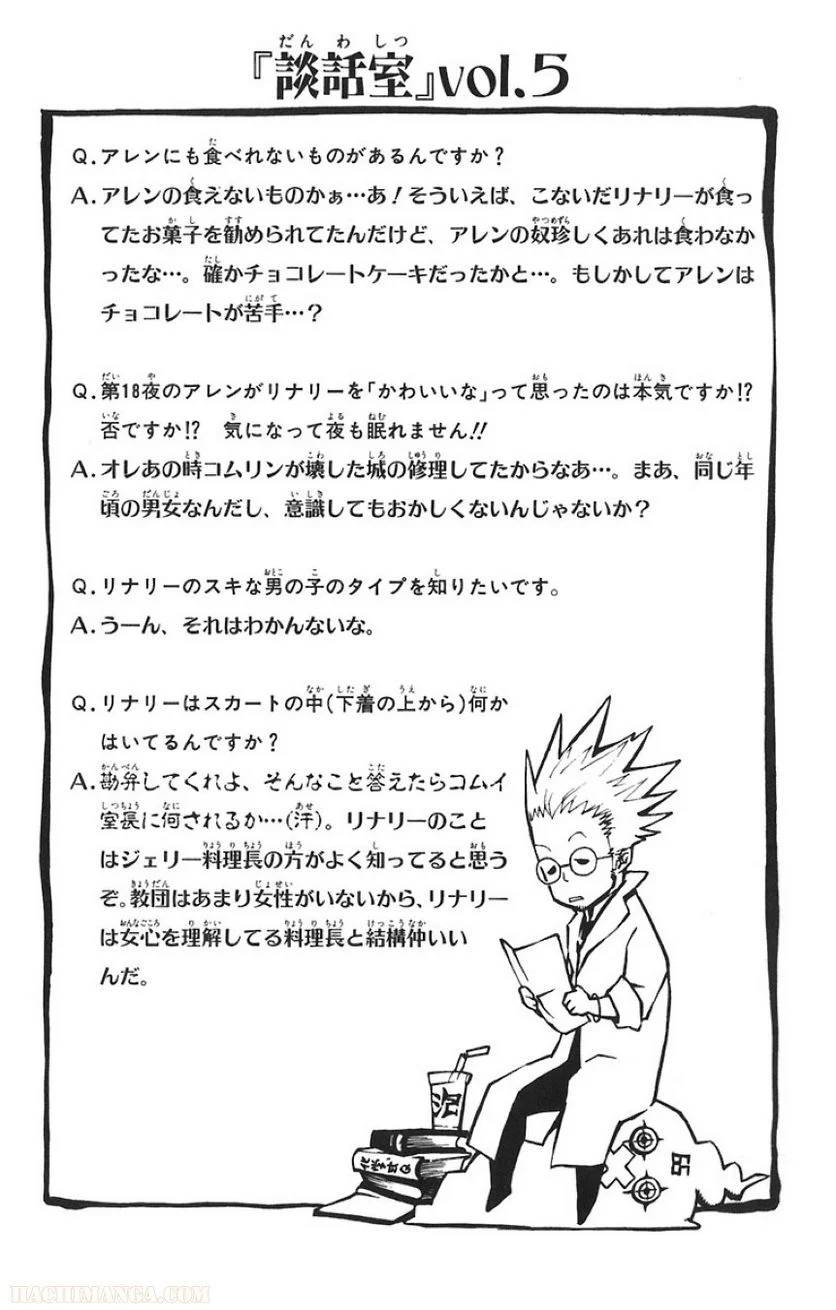 『談話室』vol.5
Q.アレンにも食べれないものがあるんですか？
A.アレンの食えないものかぁ…あ！そういえば、こないだリナリーが食っ
てたお菓子を勧められてたんだけど、アレンの奴珍しくあれは食わなか
ったな…。確かチョコレートケーキだったかと…。もしかしてアレンは
チョコレートが苦手…？
Q.第18夜のアレンがリナリーを「かわいいな」って思ったのは本気ですか!?
否ですか!?　気になって夜も眠れません!!
A.オレあの時コムリンが壊した城の修理してたからなあ…。まあ、同じ年
頃の男女なんだし、意識してもおかしくないんじゃないか？
Q.リナリーのスキな男の子のタイプを知りたいです。
A.うーん、それはわかんないな。
Q.リナリーはスカートの中(下着の上から)何か
はいてるんですか？
A.勘弁してくれよ、そんなこと答えたらコムイ
室長に何されるか…(汗)。リナリーのこと
はジェリー料理長の方がよく知ってると思う
ぞ。教団はあまり女性がいないから、リナリー
は女心を理解してる料理長と結構仲いい
んだ。
泥
HACHIMANGA.COM